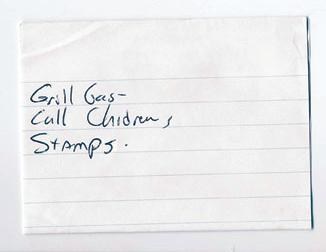 Grill Gas-
Call Chidrens
Stamps.